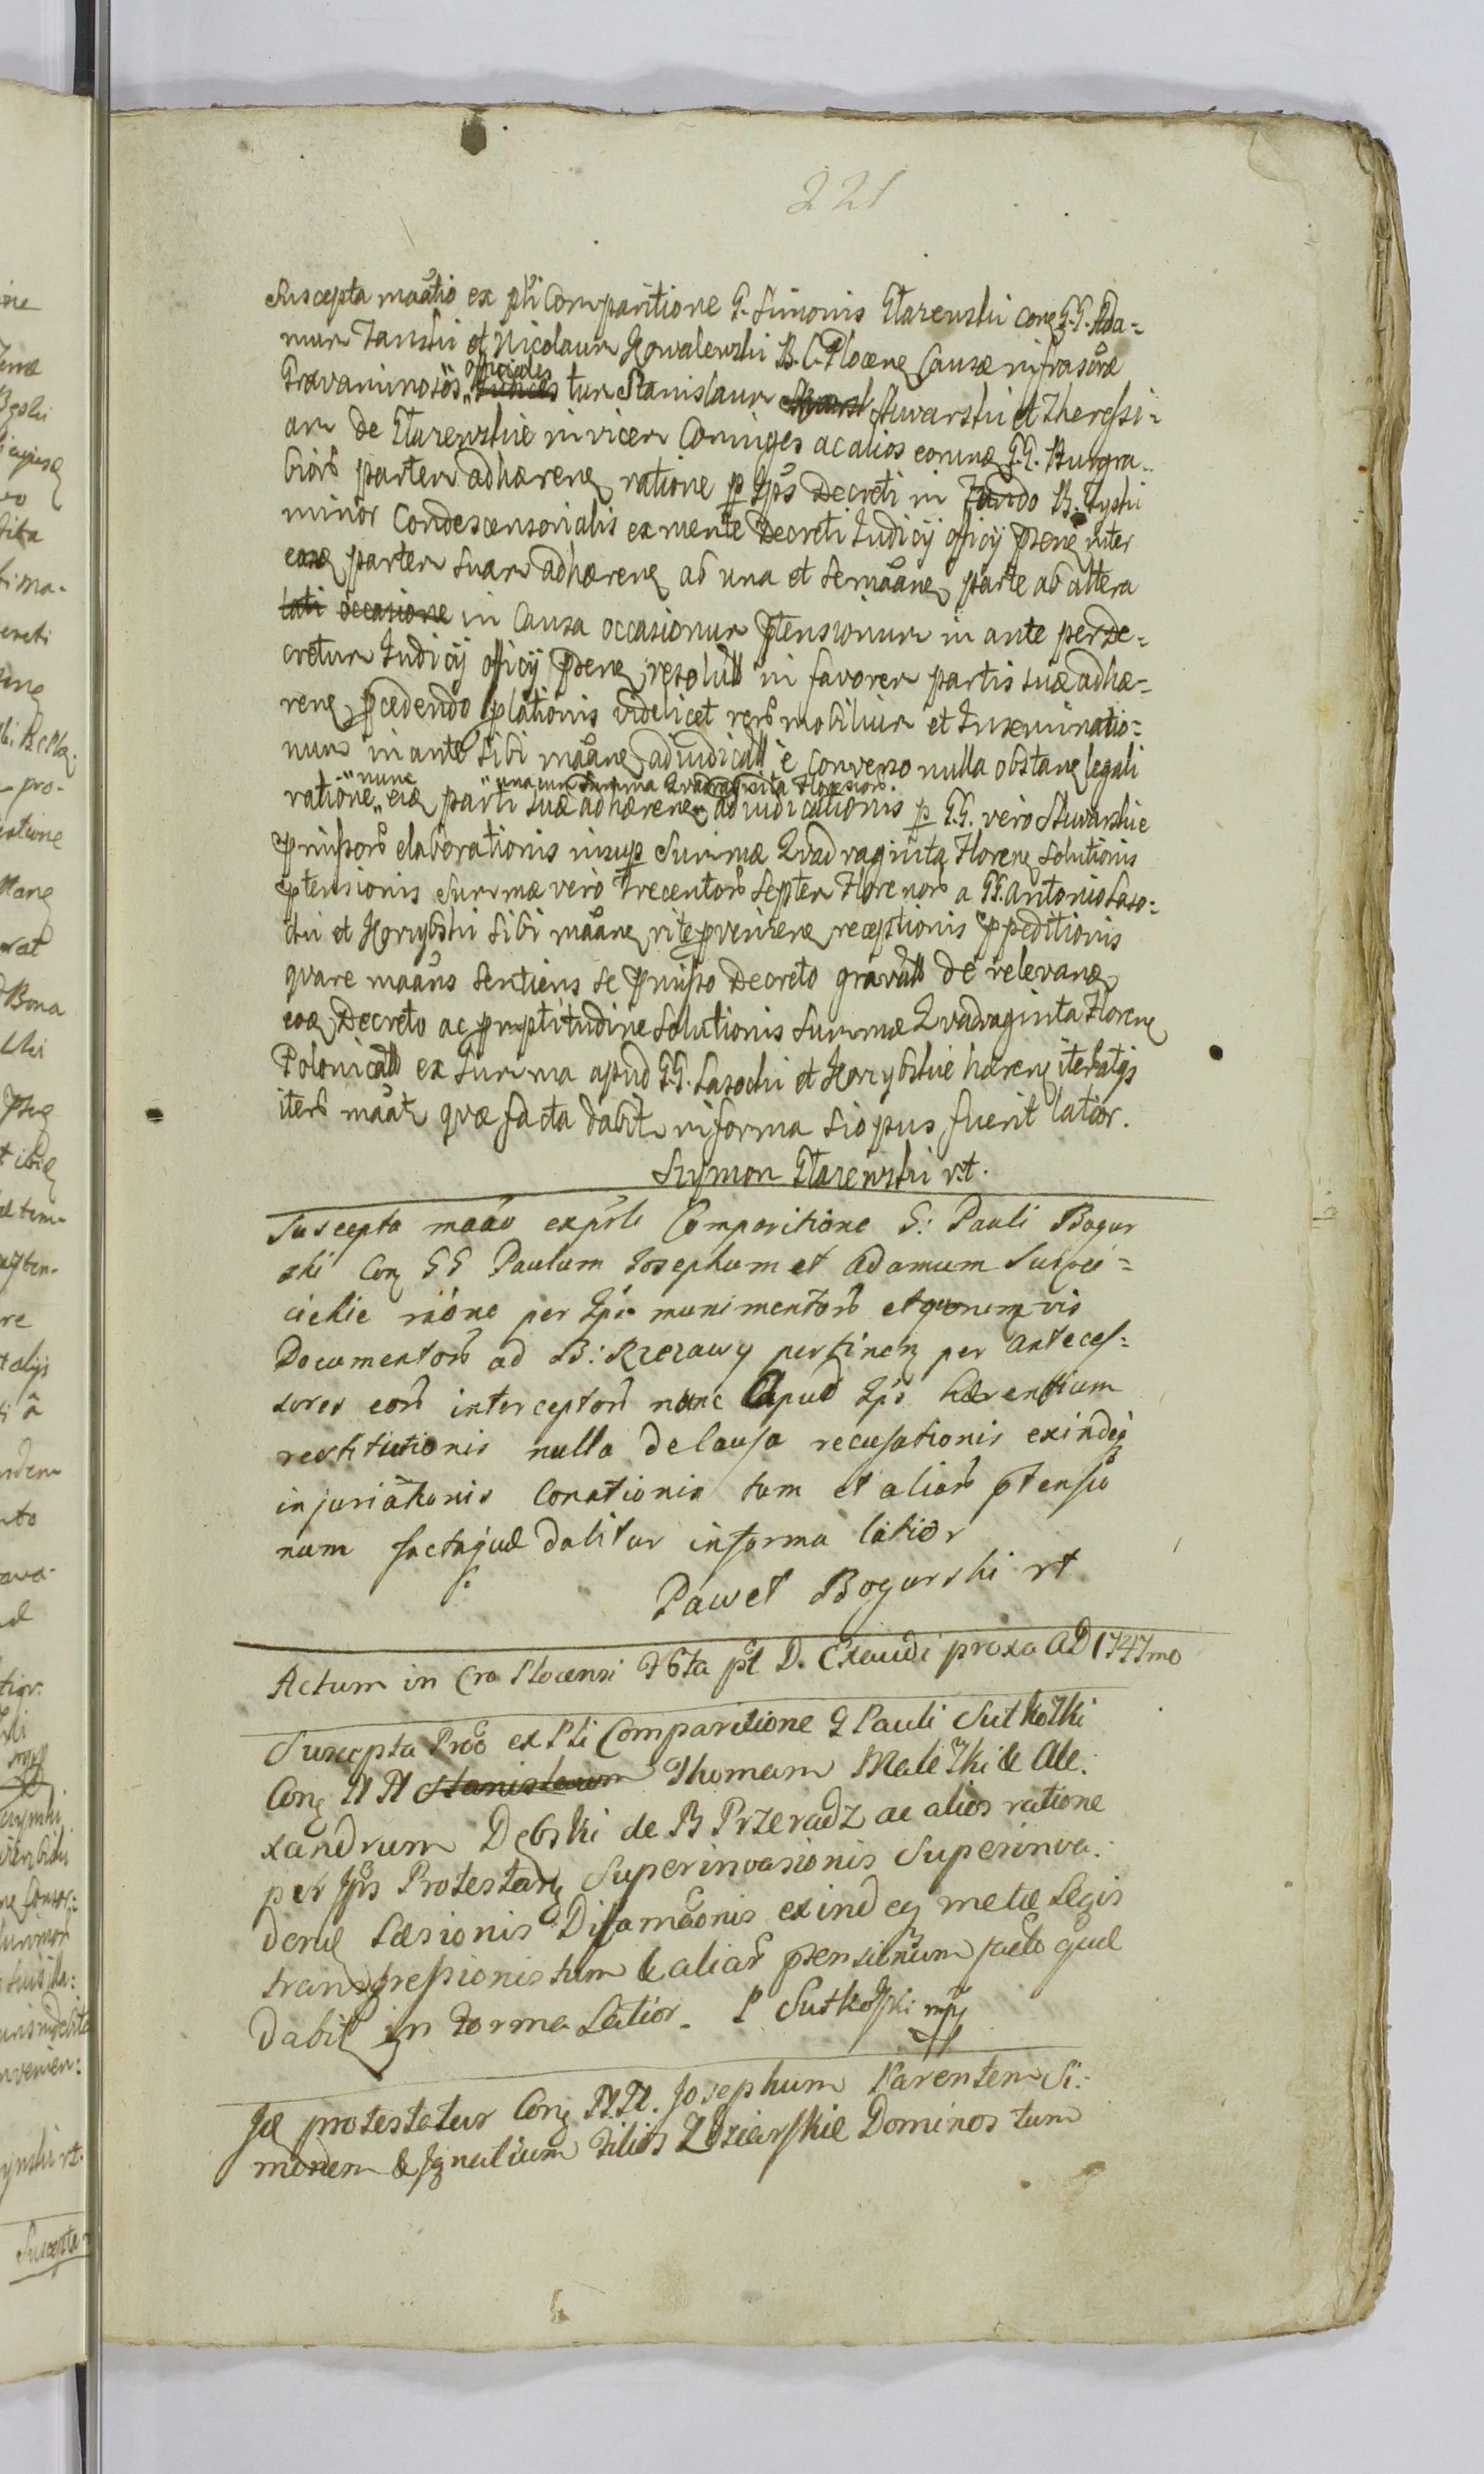 221
Suscepta maãtio ex pñti Comparitione G. Simonis Starenski conq G.G. Ada-
mum Janski et Nicolaum Kowalewski B.C. Plocenę Causæ infrascræ
Gravaminosos officiales Judices tum Stanislaum Skwarski et Theressi-
am de Starenskie invicem Coniuges ac alios eorumq G.G. Burgra-
biorũ partem adhærenę ratione p Ips Decreti in Fundo B. Łyski
minor Condescensorialis ex mente Decreti Judicij officij psenę inter
easq partem suam adhærenę ab una et se maãnę parte ab altera
lati occasione in Causa occasionum ptensionum in ante per de-
cretum Judicij officij psenę resolut in favorem partis suæ adhæ-
renę pcedendo plationis videlicet rerũ mobilium et Inseminatio-
num in ante sibi maãnę adiudicat è converso nulla obstanę legali
ratione nunc eiq parti suæ adhærenę una cum Summa Quadraginta Florenorũ adiudicationis p G.G. vero Skwarskie
pmissorũ elaborationis insup Summæ Quadraginta Florenę Solutionis
ptensionis Summæ vero Trecentorũ Septem Florenorũ a GG. Antonio Laso-
cki et Korzybski sibi maãnę rite pvenienę receptionis ppeditionis
quare maãns sentiens se pmisso Decreto gravat de relevanę
eoq Decreto ac promptitudine Solutionis Summæ Quadraginta Florenę
Polonicat ex Summa apud G.G. Lasocki et Korzybskie hærenę iteratis
iterũ maãt quæ facta dabit in forma si opus fuerit latior.
Szymon Starenski rt.
Suscepta maão ex pñti Comparitione G: Pauli Bogur
ski Conq GG Paulum Josephum et Adamum Sulęci-
cickie raõne per Ips munimentorũ et quorumvis
Documentorũ ad B: Rzezawy pertinenę per anteces-
sores eorũ interceptorũ nunc Apud Ips hærentium
restitutionis nulla de Causa recusationis exindeq
injuriationis Conationis tum et aliarũ ptensio
num facta quæ dabitur in forma latior
Paweł Bogurski rt
Actum in Cro Plocensi Fta pt D. Exaudi proxa AD 1747mo
Suscepta Proõ ex Pti Comparitione G Pauli Sutkoski
Conq NN Stanislaum Thomam Maleski & Ale-
xandrum Dębski de B Przeradz ac alios ratione
per Ips Protestanę Superinvasionis Superinva-
denę Læsionis Difamãonis exindeq metæ Legis
transgressionis tum & aliarũ ptensionum facto quæ
Dabit in forma Latior. P Sutkoski mp
Id protestatur Conq NN. Josephum Parentem Si-
monem & Ignatium Filios Zdziarskie Dominos tum